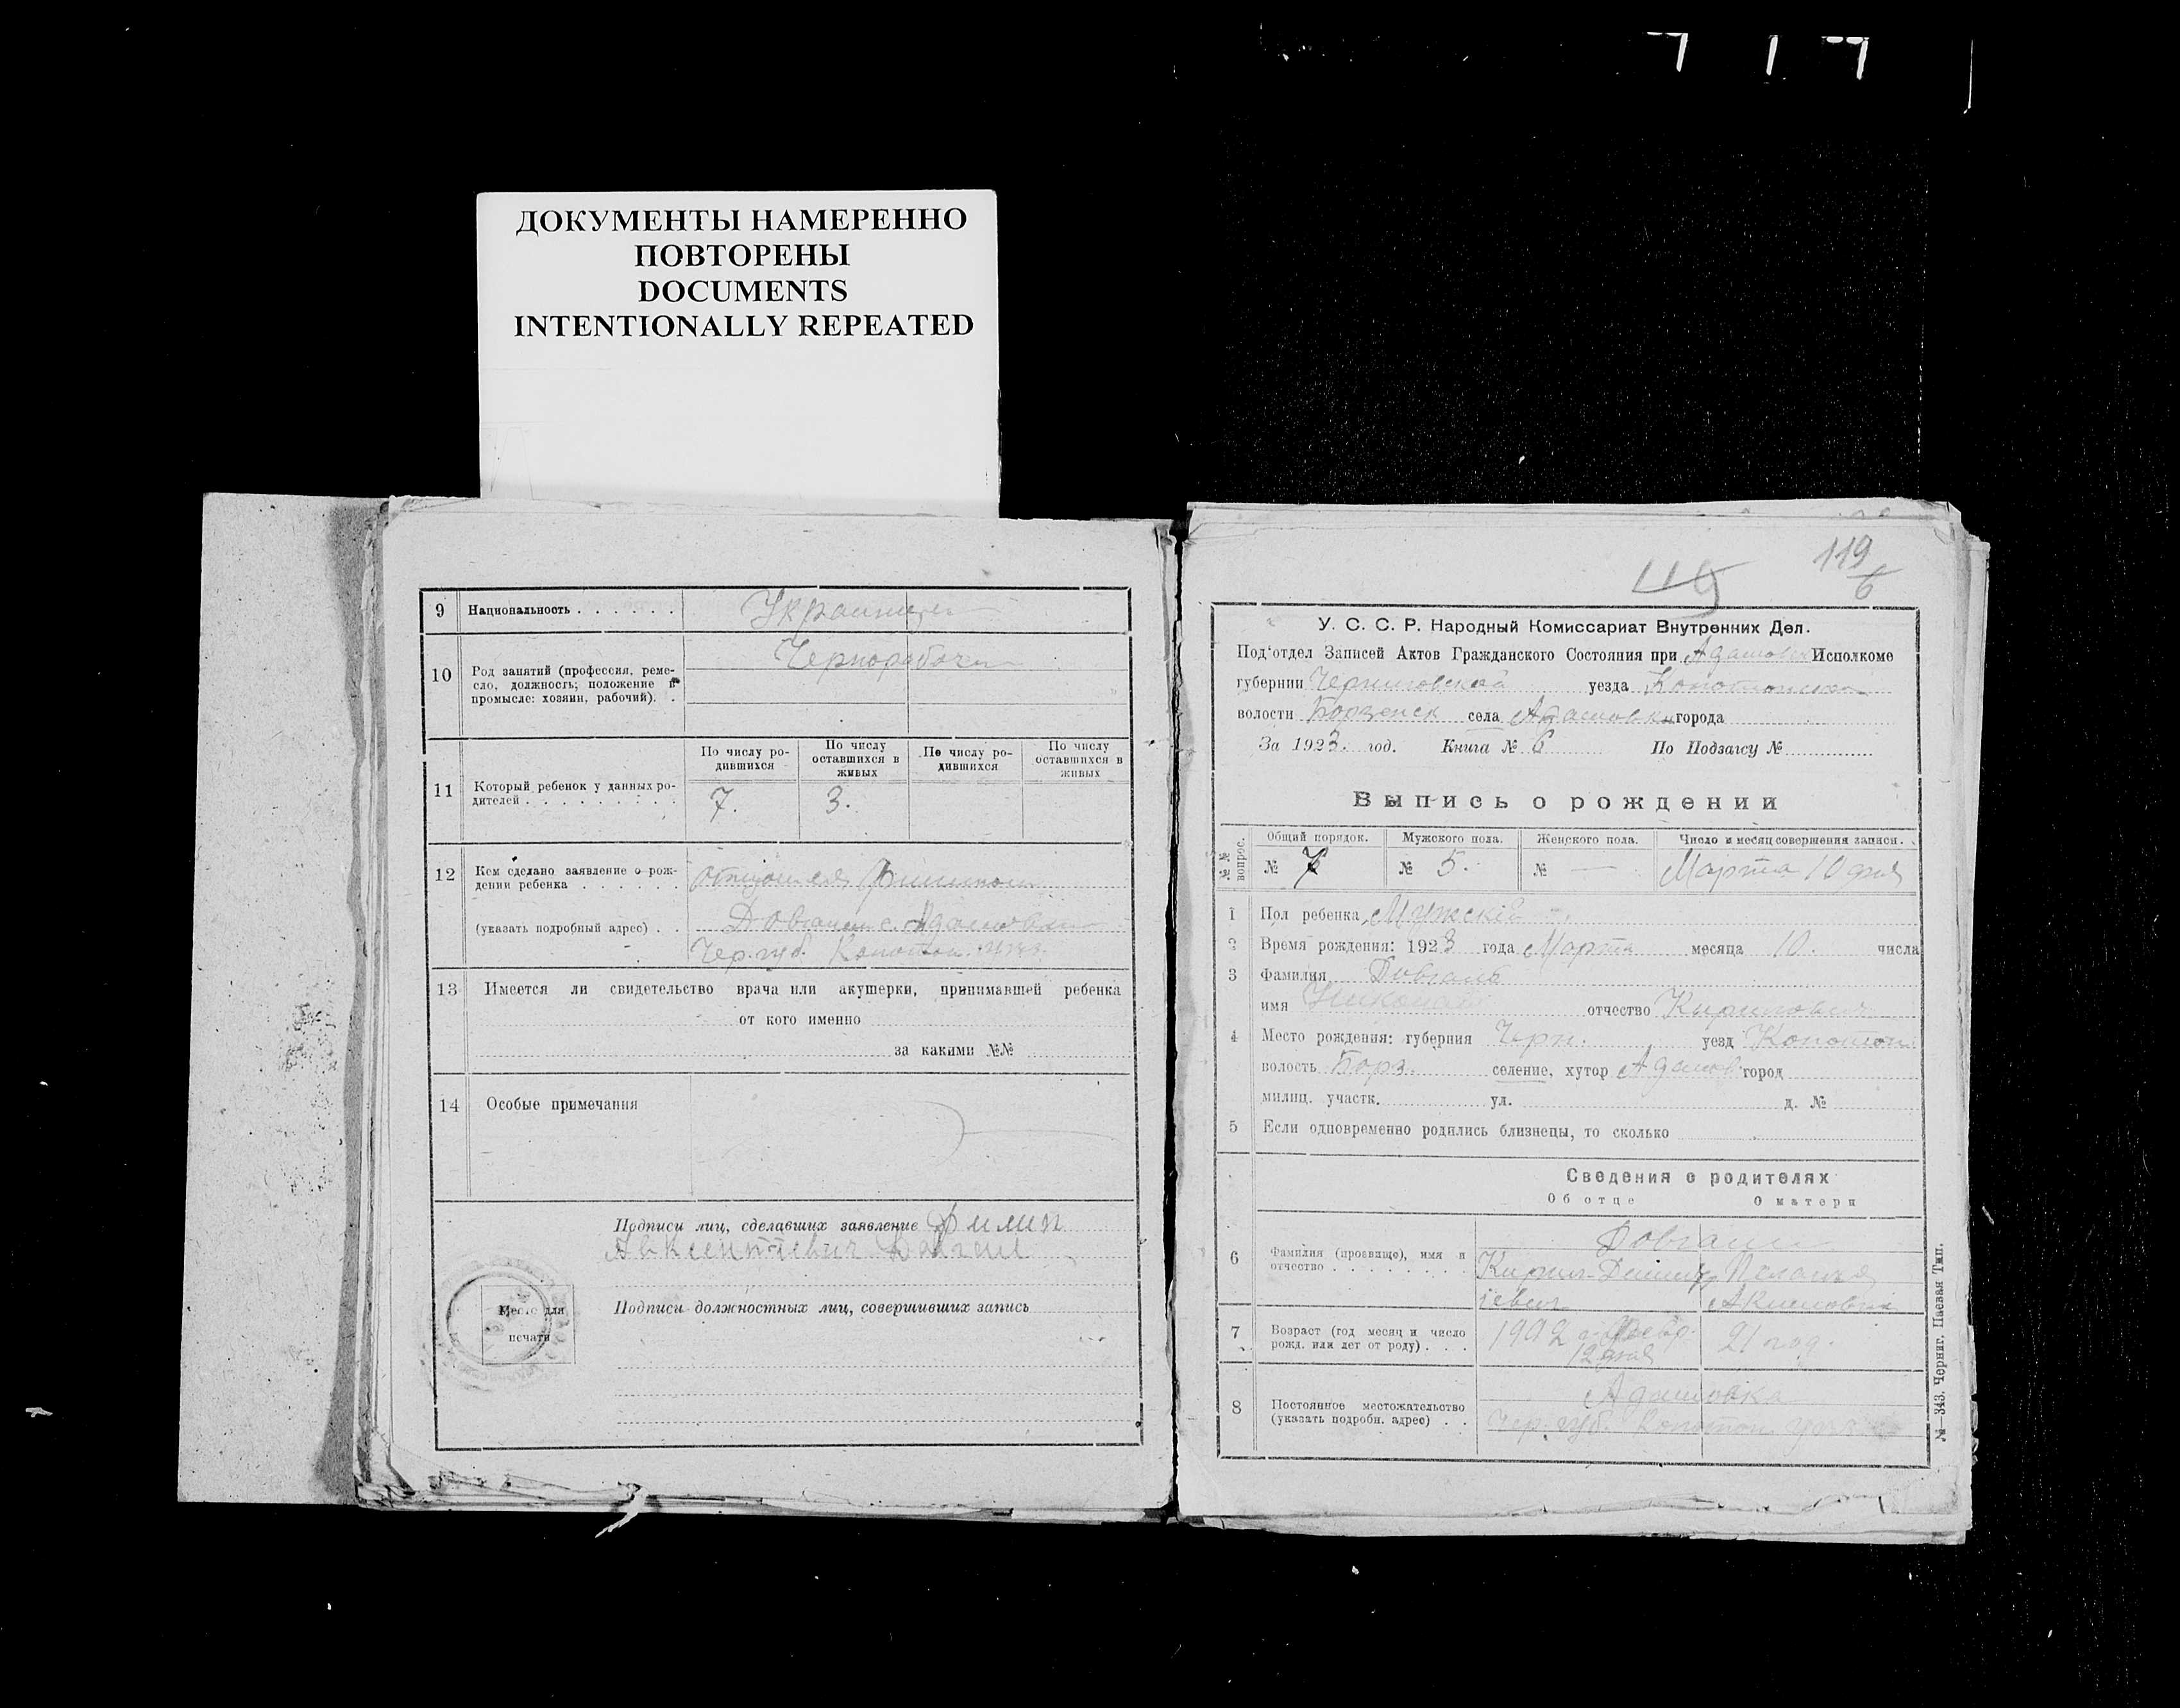 ДОКУМЕНТЫ НАМЕРЕННО
ПОВТОРЕНЫ
DOCUMENTS
INTENTIONALLY REPEATED
9 Национальность . . . . . . Украинцы
10 Род занятий (профессия, реме-
сло, должность; положение в
промысле: хозяин, рабочий). . Чернорабочи
11 Который ребенок у данных ро-
дителей . . . . . . . . .
По числу ро-
дившихся
По числу
оставшихся в
живых
По числу ро-
дившихся
По числу
оставшихся в
живых
7. 3.
12 Кем сделано заявление о рож-
дении ребенка . . . . . . отцом его
(указать подробный адрес) . . с.
Чер. губ. Конотоп.
13 Имеется ли свидетельство врача или акушерки, принимавшей ребенка
от кого именно
за какими №№
14 Особые примечания
Подписи лиц, сделавших заявление Филип
Авксентіевич
Место для
печати
Подписи должностных лиц, совершивших запись
119
119
6
У. С. С. Р. Народный Комиссариат Внутренних Дел.
Под‘отдел Записей Актов Гражданского Состояния при Исполкоме
губернии Черниговской уезда
волости Борзенск села города
За 1923. год. Книга № 6 По Подзагсу №
Выпись о рождении
№№ вопрос.
Общий порядок. Мужского пола. Женского пола. Число и месяц совершения записи.
№ 7 № 5. № — Марта 10 дня
1 Пол ребенка Мужскій
2 Время рождения: 1923 года Марта месяца 10. числа
3 Фамилия Довгаль
имя Николай отчество Кирилович
4 Место рождения: губерния Черн. уезд Конотоп
волость Борз. селение, хутор город
милиц. участк. ул. д. №
5 Если одновременно родились близнецы, то сколько
Сведения о родителях
Об отце О матери
6 Фамилия (прозвище), имя и
отчество . . . . . . . .
Кирил
7 Возраст (год месяц и число
рожд. или лет от роду) . . . 1902 21 год.
12 дня
8 Постоянное местожательство
(указать подробн. адрес) . .
Чер. губ. Конотоп
№—343. Черниг. Паевая Тип.